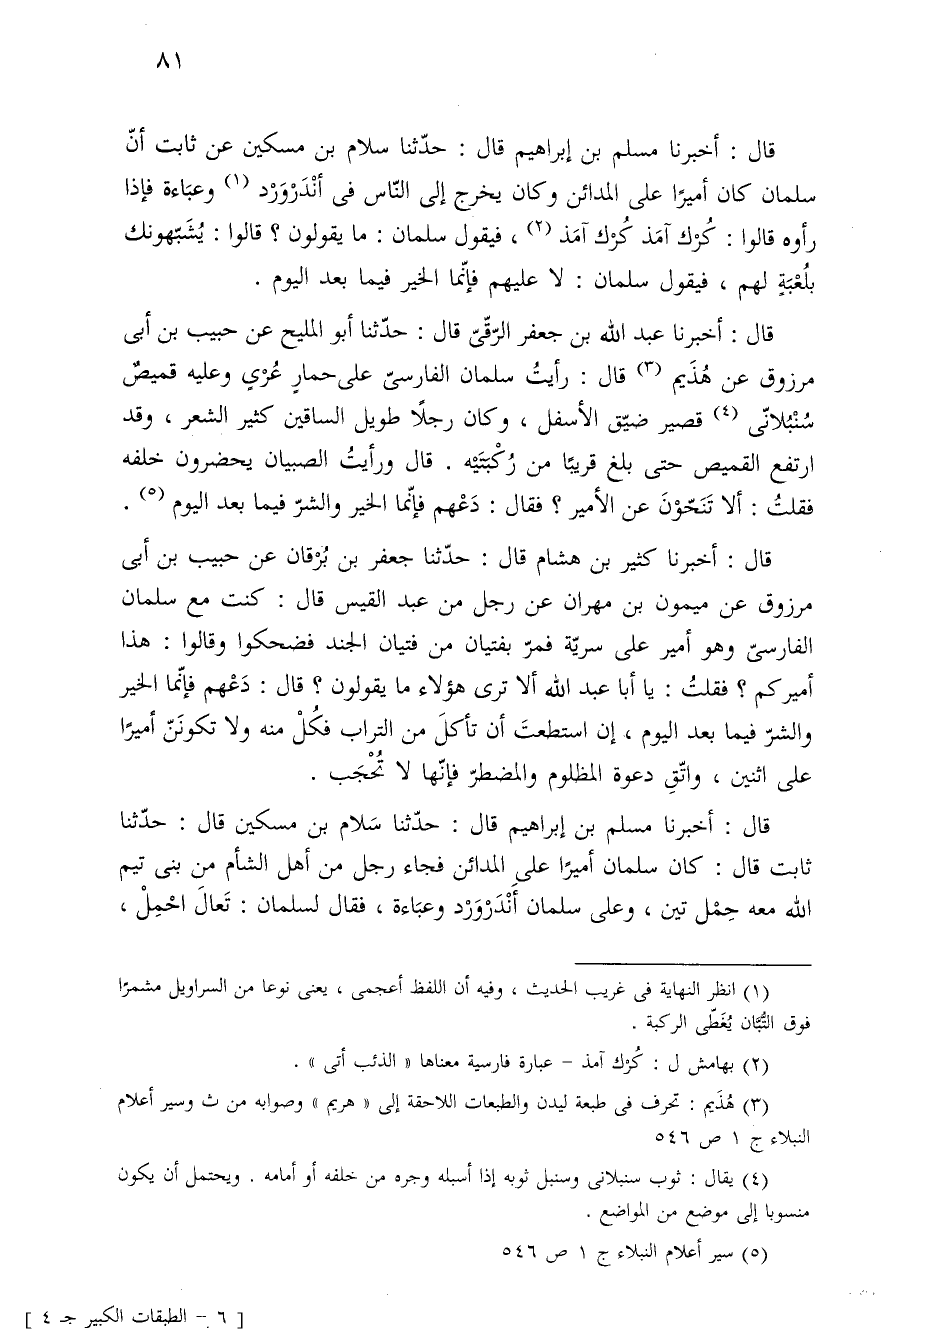 ٨١
قال : أخبرنا مسلم بن إبراهيم قال : حدّثنا سلام بن مسكين عن ثابت أنّ
سلمان كان أميرًا على المدائن وكان يخرج إلى النّاس فى أنْدَرْوَرْد (١) وعبَاءة فإذا
رأوه قالوا : كُرْك آمَذ كُرْك آمَذ (٢) ، فيقول سلمان : ما يقولون ؟ قالوا : يُشَبّهونك
بلُعْبَةٍ لهم ، فيقول سلمان : لا عليهم فإنّما الخير فيما بعد اليوم .
قال : أخبرنا عبد الله بن جعفر الرّقّىّ قال : حدّثنا أبو المليح عن حبيب بن أبى
مرزوق عن هُذَيم (٣) قال : رأيتُ سلمان الفارسىّ على حمارٍ عُرْىٍ وعليه قميصٌ
سُنْبُلانّى (٤) قصير ضيّق الأسفل ، وكان رجلًا طويل الساقين كثير الشعر ، وقد
ارتفع القميص حتى بلغ قريبًا من رُكْبَتَيْه . قال ورأيتُ الصبيان يحضرون خلفه
فقلتُ : ألا تَنَحّوْنَ عن الأمير ؟ فقال : دَعْهم فإنّما الخير والشرّ فيما بعد اليوم (٥) .
قال : أخبرنا كثير بن هشام قال : حدّثنا جعفر بن بُرْقان عن حبيب بن أبى
مرزوق عن ميمون بن مهران عن رجل من عبد القيس قال : كنت مع سلمان
الفارسىّ وهو أمير على سريّة فمرّ بفتيان من فتيان الجند فضحكوا وقالوا : هذا
أميركم ؟ فقلتُ : يا أبا عبد الله ألا ترى هؤلاء ما يقولون ؟ قال : دَعْهم فإنّما الخير
والشرّ فيما بعد اليوم ، إن استطعتَ أن تأكلَ من التراب فكُلْ منه ولا تكونَنّ أميرًا
على اثنين ، واتّقِ دعوة المظلوم والمضطرّ فإنّها لا تُحْجَب .
قال : أخبرنا مسلم بن إبراهيم قال : حدّثنا سَلام بن مسكين قال : حدّثنا
ثابت قال : كان سلمان أميرًا على المدائن فجاء رجل من أهل الشأم من بنى تيم
الله معه حِمْل تين ، وعلى سلمان أَنْدَرْوَرْد وعبَاءة ، فقال لسلمان : تَعالَ احْمِلْ ،
(١) انظر النهاية فى غريب الحديث ، وفيه أن اللفظ أعجمى ، يعنى نوعا من السراويل مشمرًا
فوق التُّبَّان يُغَطّى الركبة .
(٢) بهامش ل : كُرْك آمذ – عبارة فارسية معناها « الذئب أتى » .
(٣) هُذَيم : تحرف فى طبعة ليدن والطبعات اللاحقة إلى « هريم » وصوابه من ث وسير أعلام
النبلاء ج ١ ص ٥٤٦
(٤) يقال : ثوب سنبلانى وسنبل ثوبه إذا أسبله وجره من خلفه أو أمامه . ويحتمل أن يكون
منسوبا إلى موضع من المواضع .
(٥) سير أعلام النبلاء ج ١ ص ٥٤٦
[ ٦ – الطبقات الكبير جـ ٤ ]